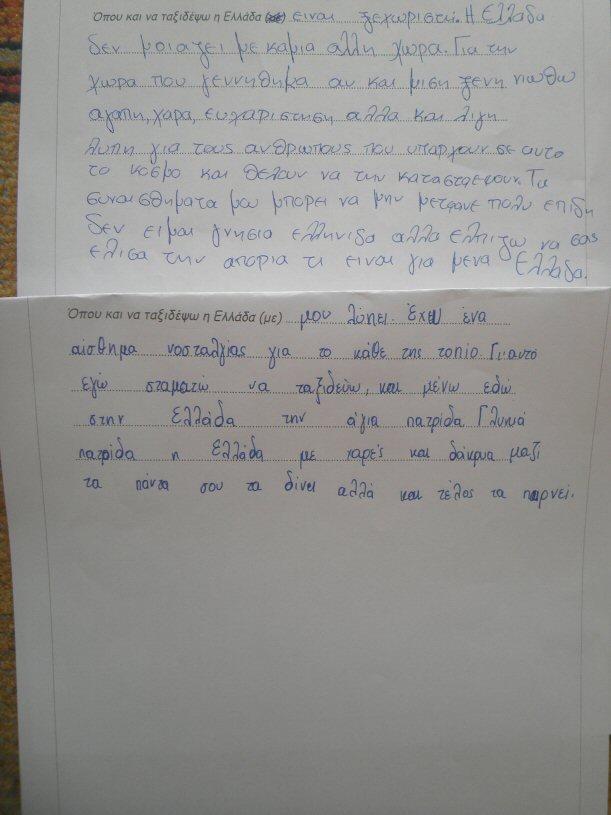 Όπου και να ταξιδέψω η Ελλάδα ειναι ξεχωριστη. Η Ελλαδα
δεν μοιαζει με καμια αλλη χωρα. Για την
χωρα που γεννηθημα αν και μιση ξενη νιωθω
αγαπη, χαρα, ευχαριστηση αλλα και λιγη
λυπη για τους ανθρωπους που υπαρχουν σε αυτο
το κοσμο και θελουν να την καταστρεψουν. Τα
συναισθηματα μου μπορει να μην μετρανε πολυ επιδη
δεν ειμαι γνησια ελληνιδα αλλα ελπιζω να σας
ελισα την απορια τι ειναι για μενα Ελλαδα.
Όπου και να ταξιδέψω η Ελλάδα (με) μου λύπει. Έχω ένα
αίσθημα νοσταλγίας για το κάθε της τοπίο. Γι'αυτό
εγώ σταματώ να ταξιδεύω, και μένω εδώ
στην Ελλάδα την άγια πατρίδα. Γλυκιά
πατρίδα η Ελλάδα με χαρές και δάκρυα μαζί
τα πάντα σου τα δίνει αλλά και τέλος τα παρνεί.